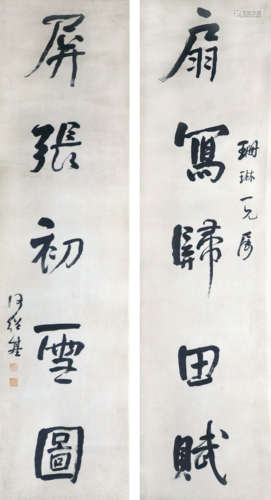 扇寫歸田賦
珊琳一兄屬
屏張初雪圖
何紹基